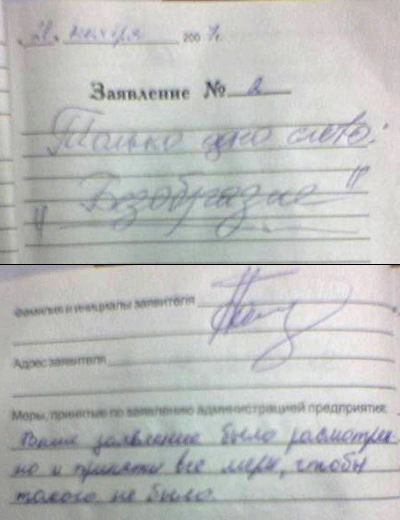 28. ноября 2007г.
Заявление № 2
Только одно слово:
"Безобразие"
Фамилия и инициалы заявителя
Адрес заявителя
Меры, принятые по заявлению администрацией предприятия
Ваше заявление было расмотрен-
но и приняты все меры, чтобы
такого не было.